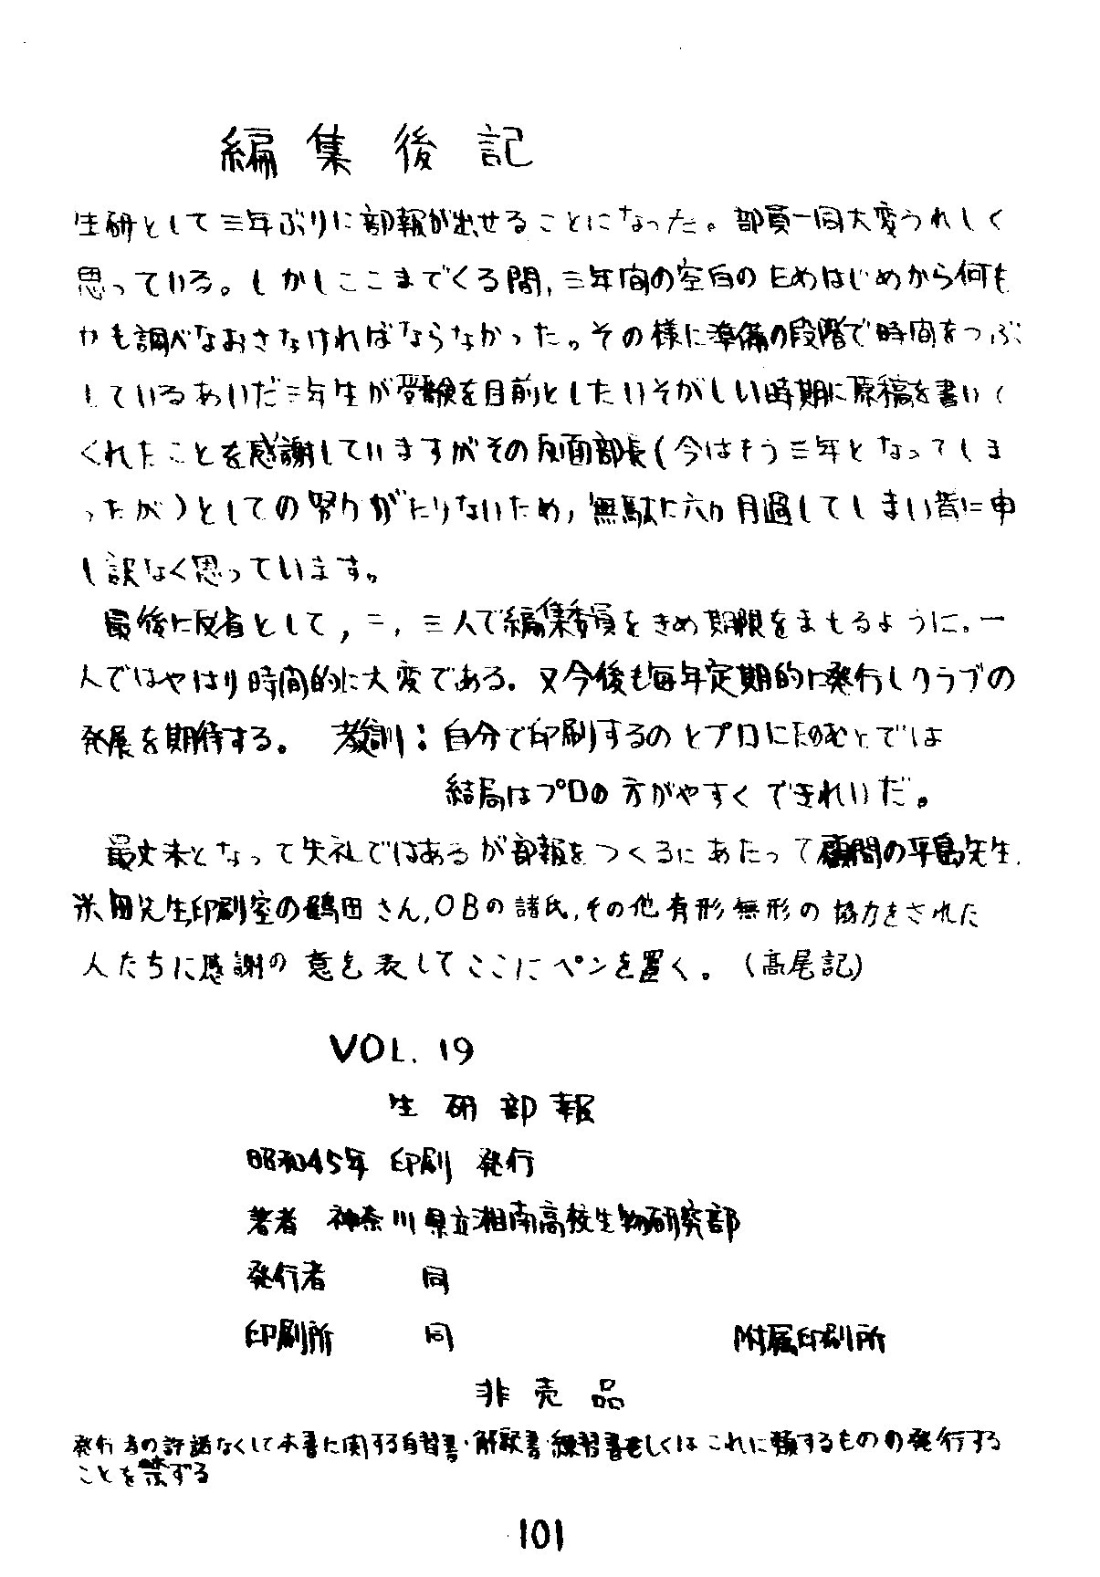 編集後記
生研として三年ぶりに部報が出せることになった。部員一同大変うれしく
思っている。しかしここまでくる間,三年間の空白のためはじめから何も
かも調べなおさなければならなかった。その様に準備の段階で時間をつぶ
しているあいだ三年生が受験を目前としたいそがしい時期に原稿を書いて
くれたことを感謝していますがその反面部長(今はもう三年となってしま
ったが)としての努力がたりないため,無駄に六ヵ月過してしまい皆に申
し訳なく思っています。
最後に反省として,二,三人で編集委員をきめ期限をまもるように。一
人ではやはり時間的に大変である。又今後も毎年定期的に発行しクラブの
発展を期待する。 教訓:自分で印刷するのとプロにたのむとでは
結局はプロの方がやすくできれいだ。
最文末となって失礼ではあるが部報をつくるにあたって顧問の平島先生,
米田先生,印刷室の鶴田さん,OBの諸氏,その他有形無形の協力をされた
人たちに感謝の意を表してここにペンを置く。(高尾記)
VOL. 19
生研部報
昭和45年 印刷 発行
著者 神奈川県立湘南高校生物研究部
発行者 同
印刷所 同 附属印刷所
非売品
発行者の許諾なくして本書に関する自習書・解説書・練習書もしくはこれに類するものの発行する
ことを禁ずる
101